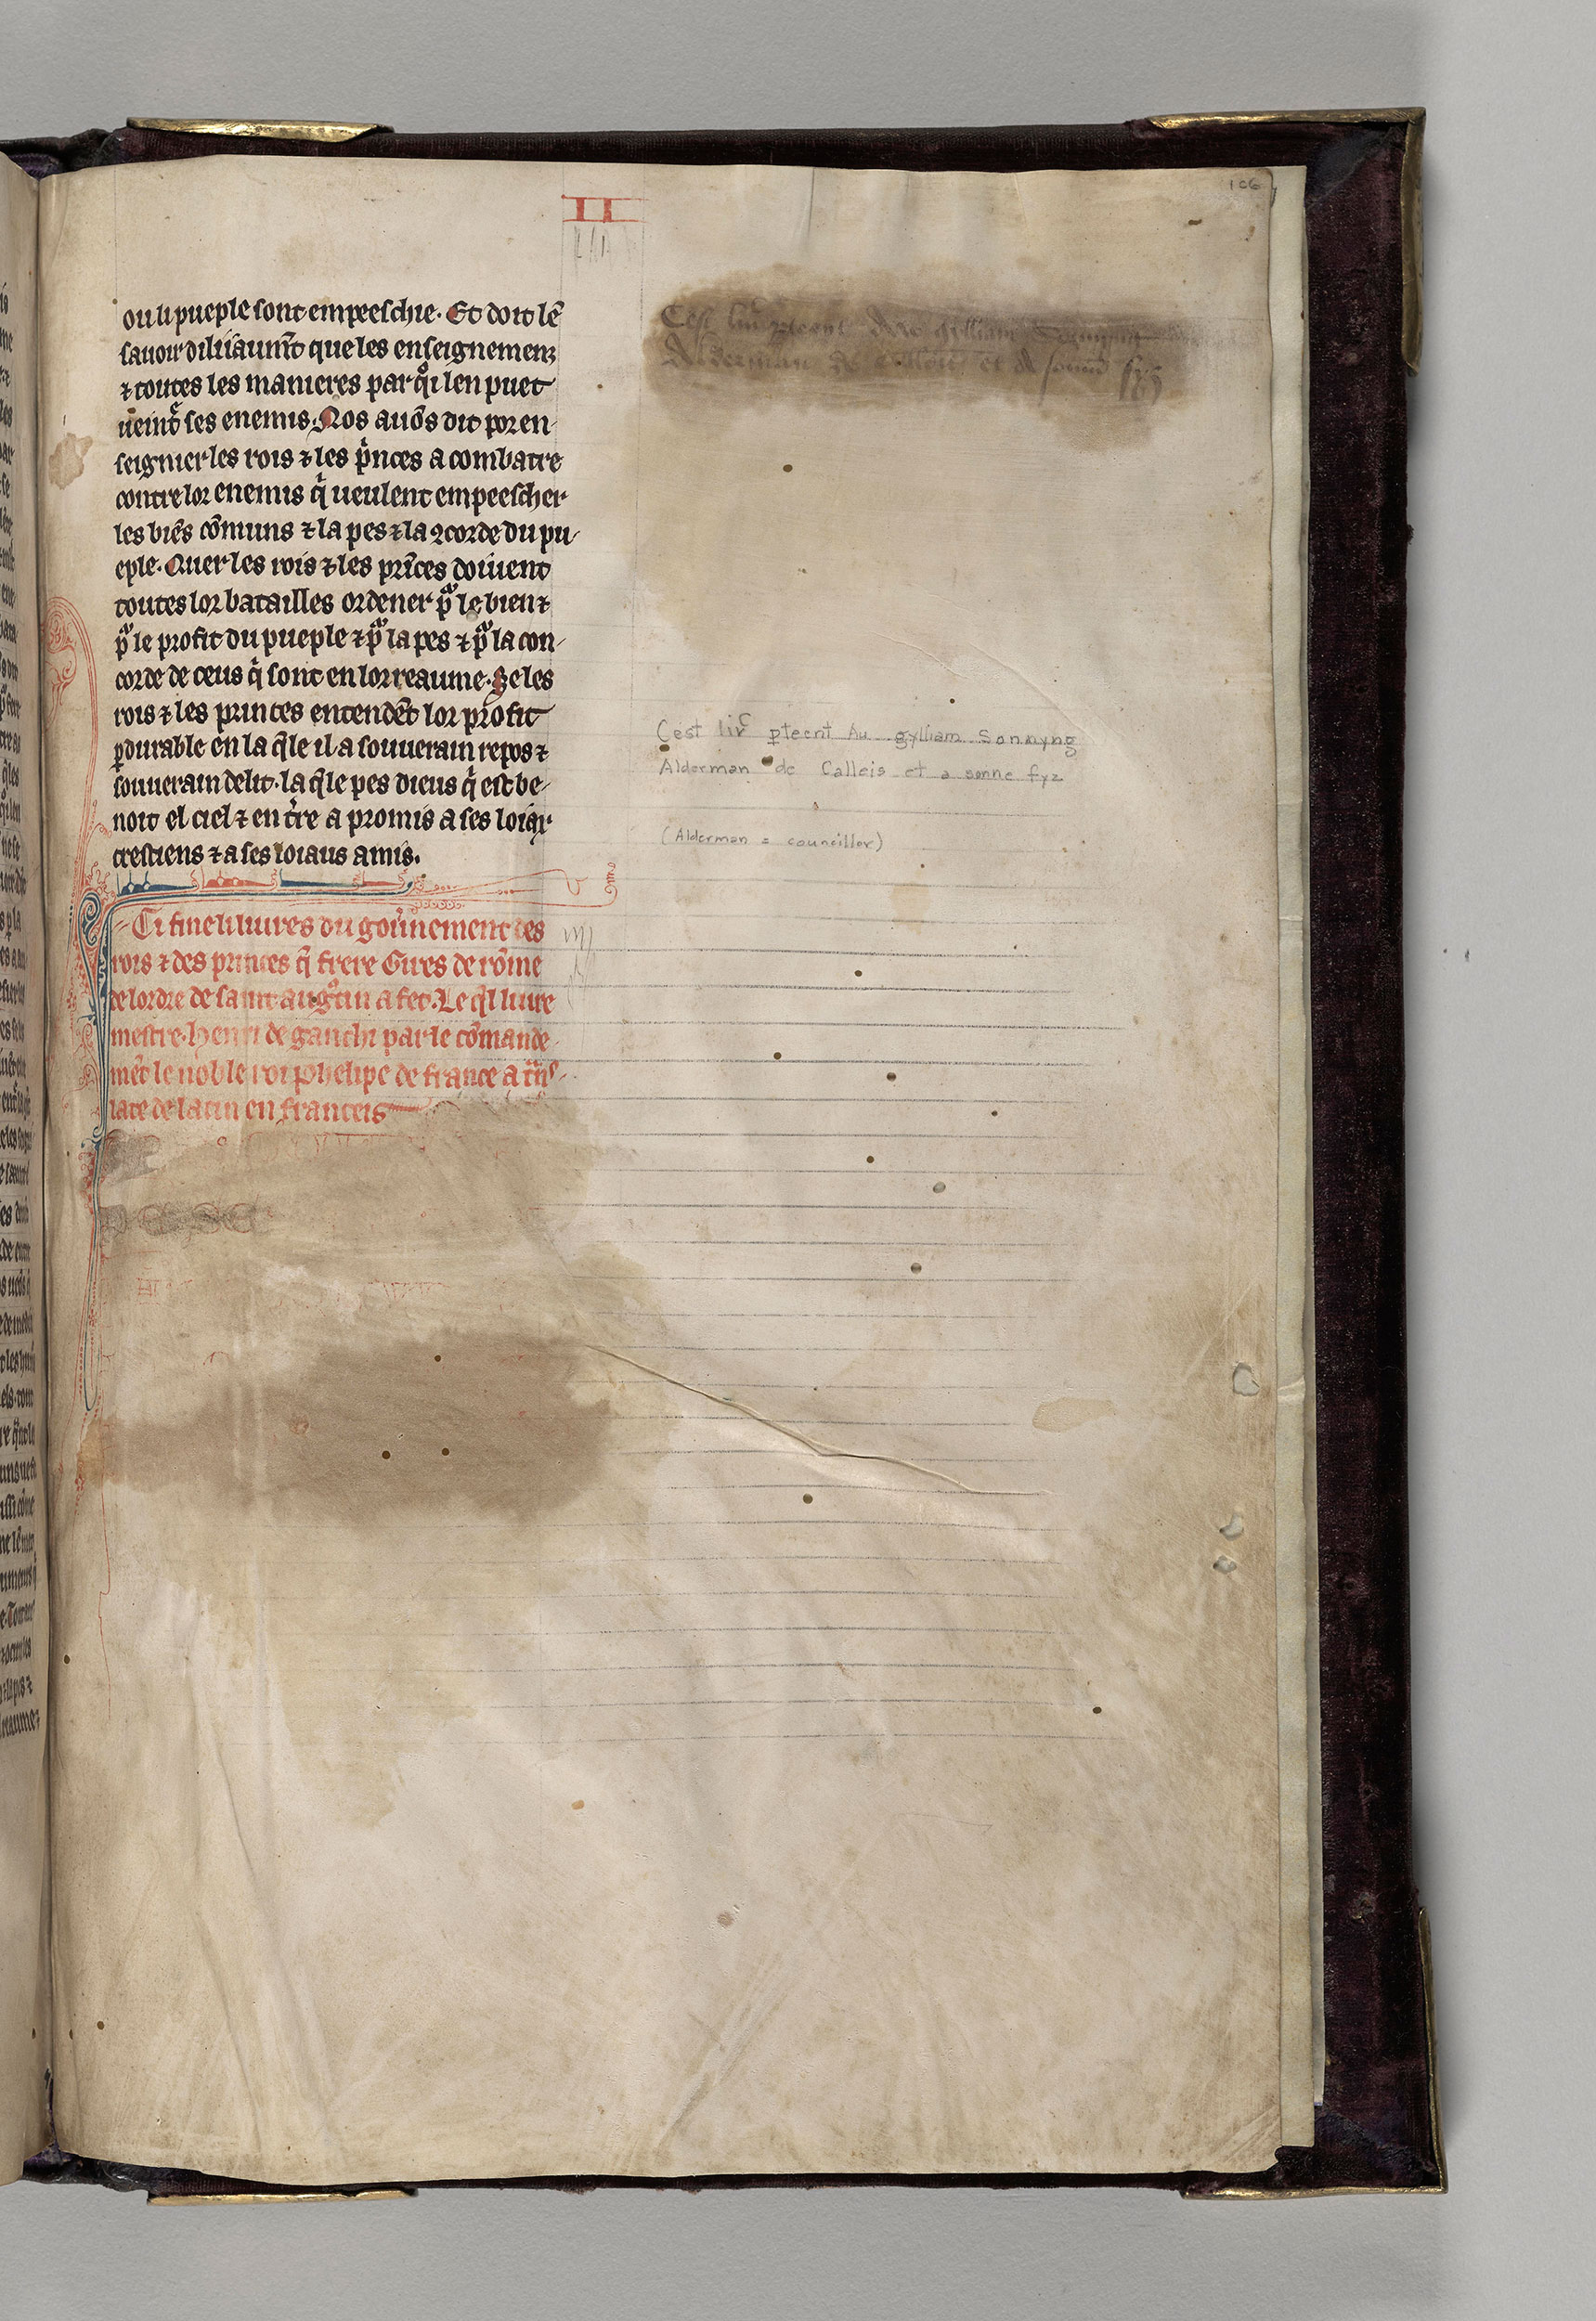 II
106
ou li pueple sont empeeschie. Et doit lē
sauoir diliiaum̄t que les enseignemenz
⁊ toutes les manieres par qͦi len puet
ueintͬ ses enemis. Nos auōs dit por en-
seignier les rois ⁊ les pͥnces a combatre
contre lor enemis qͥ ueulent empeescher
les biēs cōmuns ⁊ la pes ⁊ la ꝯcorde du pu-
eple. Quer les rois ⁊ les prīces doiuent
toutes lor batailles ordener pͬ le bien ⁊
pͬ le profit du pueple ⁊ pͬ la pes ⁊ pͬ la con-
corde de ceus qͥ sont en lor reaume. Se les
rois ⁊ les princes entendēt lor profit
ꝑdurable en la q̄le il a souuerain repos ⁊
souuerain delit. la q̄le pes dieus qͥ est be-
noit el ciel ⁊ en t̄re a promis a ses loiax
crestiens ⁊ a ses loiaus amis.
Ci fine li liures du gou̾nement des
rois ⁊ des princes q̄ frere Gires de rōme
de lordre de saint augͣtin a fet. Le q̄l liure
mestre henri de gauchi par le cōmande-
mēt le noble roi phelipe de france a tͣns-
late de latin en franceis
Cest
Alderman de et
Cest livr ꝑteent Au gylliam Sonnyng
Alderman de Calleis et a sonne fyz
(Alderman = councillor)